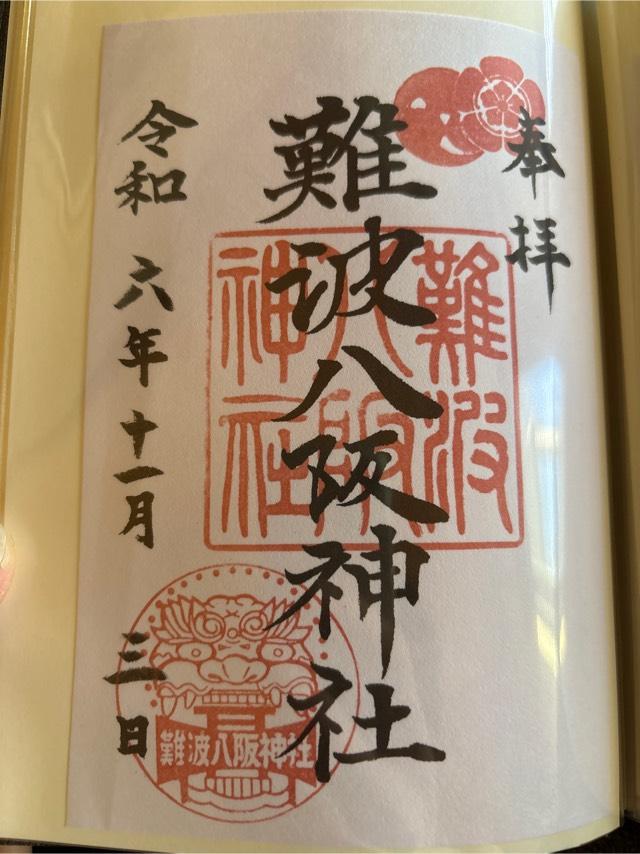 奉拝
難波八阪神社
難波
八阪
神社
令和六年十一月三日
難波八阪神社